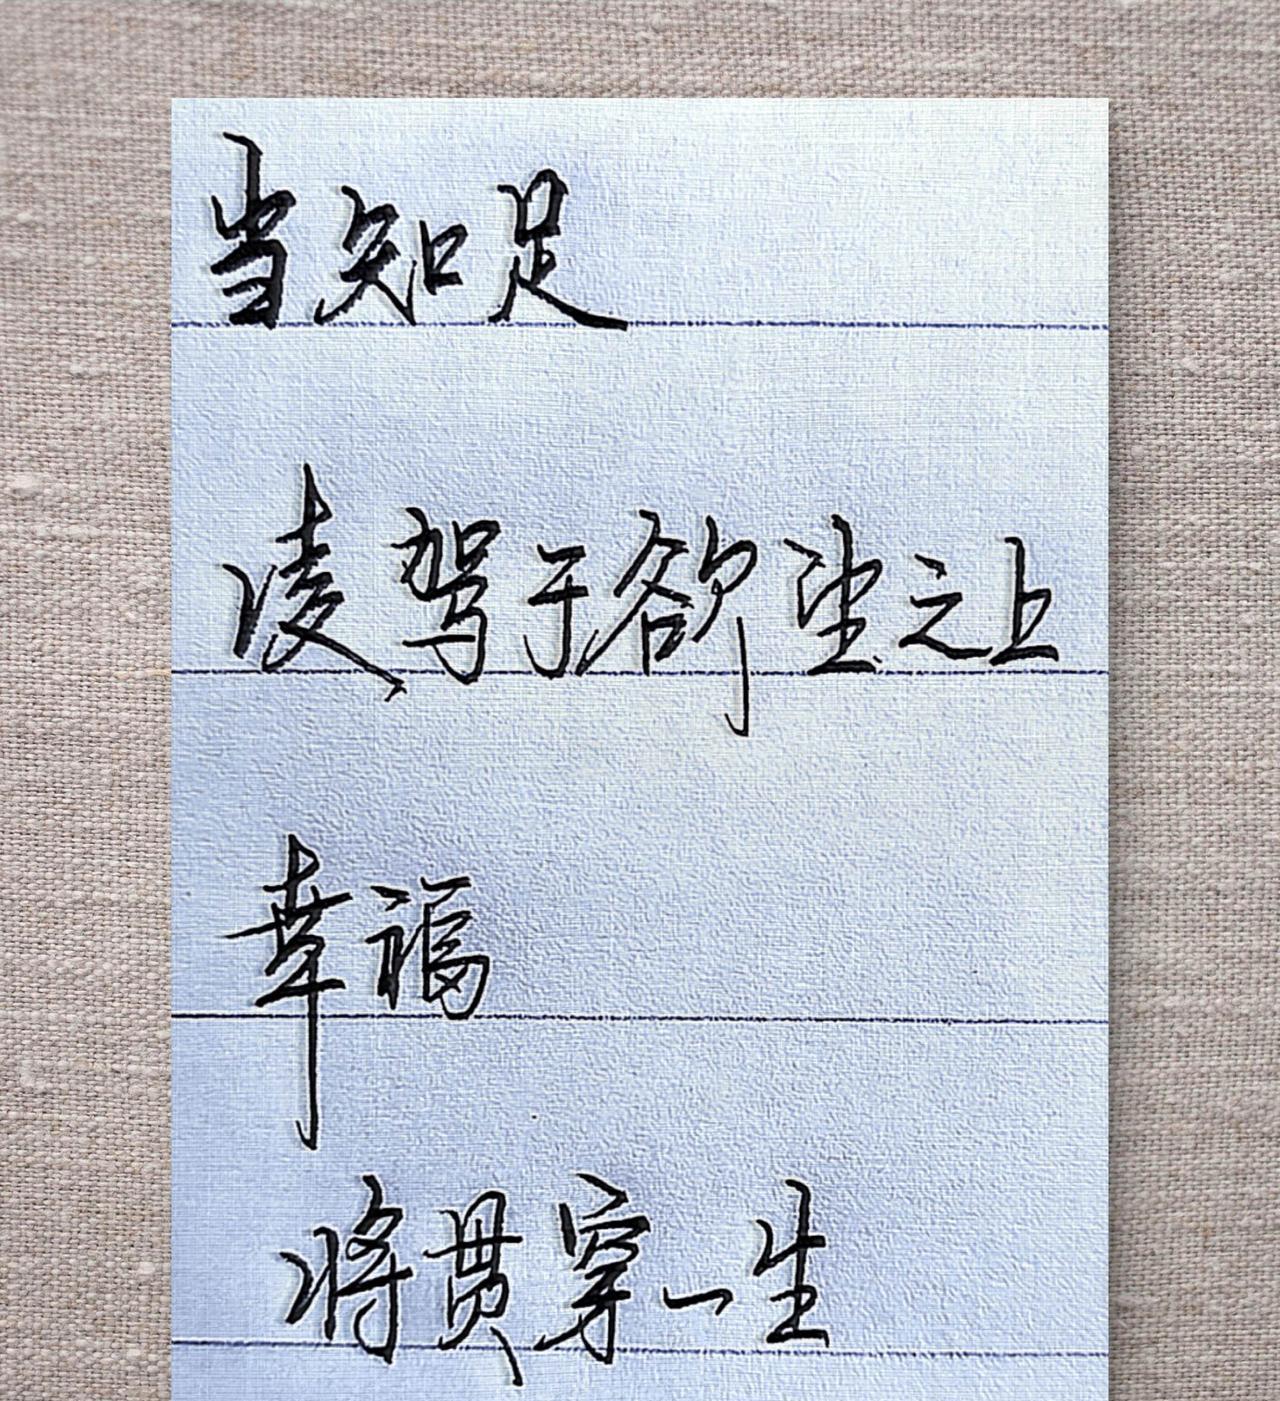 当知足
凌驾于欲望之上
幸福
将贯穿一生